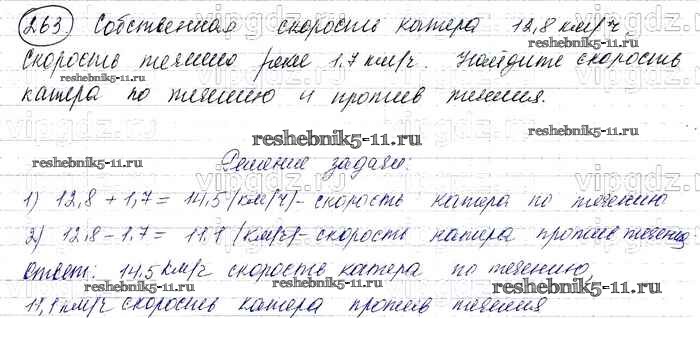 263. Собственная скорость катера 12,8 км/ч,
скорость течению реки 1,7 км/ч. Найдите скорость
reshebnik5-11.ru
катера по течению и против течения.
vipgdz.ru
reshebnik5-11.ru reshebnik5-11.ru
Решение задачи:
1) 12,8 + 1,7 = 14,5 (км/ч) - скорость катера по течению
2) 12,8 - 1,7 = 11,1 (км/ч) - скорость катера против течения
Ответ: 14,5 км/ч скорость катера по течению,
reshebnik5-11.ru reshebnik5-11.ru
11,1 км/ч скорость катера против течения